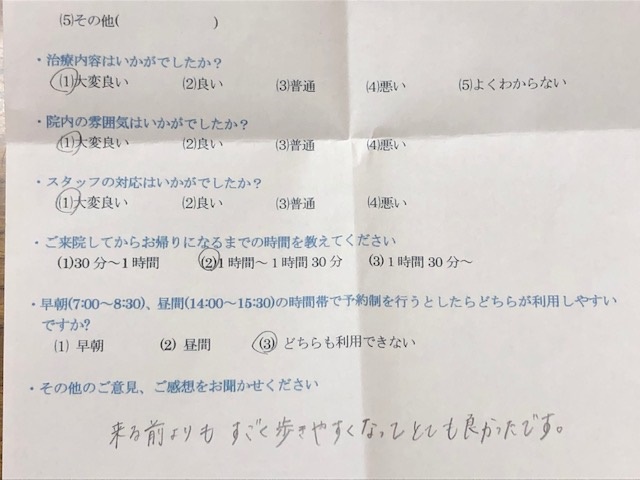 (5)その他(　　　　　　　)
・治療内容はいかがでしたか？
(1)大変良い　(2)良い　(3)普通　(4)悪い　(5)よくわからない
・院内の雰囲気はいかがでしたか？
(1)大変良い　(2)良い　(3)普通　(4)悪い
・スタッフの対応はいかがでしたか？
(1)大変良い　(2)良い　(3)普通　(4)悪い
・ご来院してからお帰りになるまでの時間を教えてください
(1)30分～1時間　(2)1時間～1時間30分　(3)1時間30分～
・早朝(7:00～8:30)、昼間(14:00～15:30)の時間帯で予約制を行うとしたらどちらが利用しやすい
ですか?
(1) 早朝　(2) 昼間　(3) どちらも利用できない
・その他のご意見、ご感想をお聞かせください
来る前よりも すごく歩きやすくなってとても良かったです。